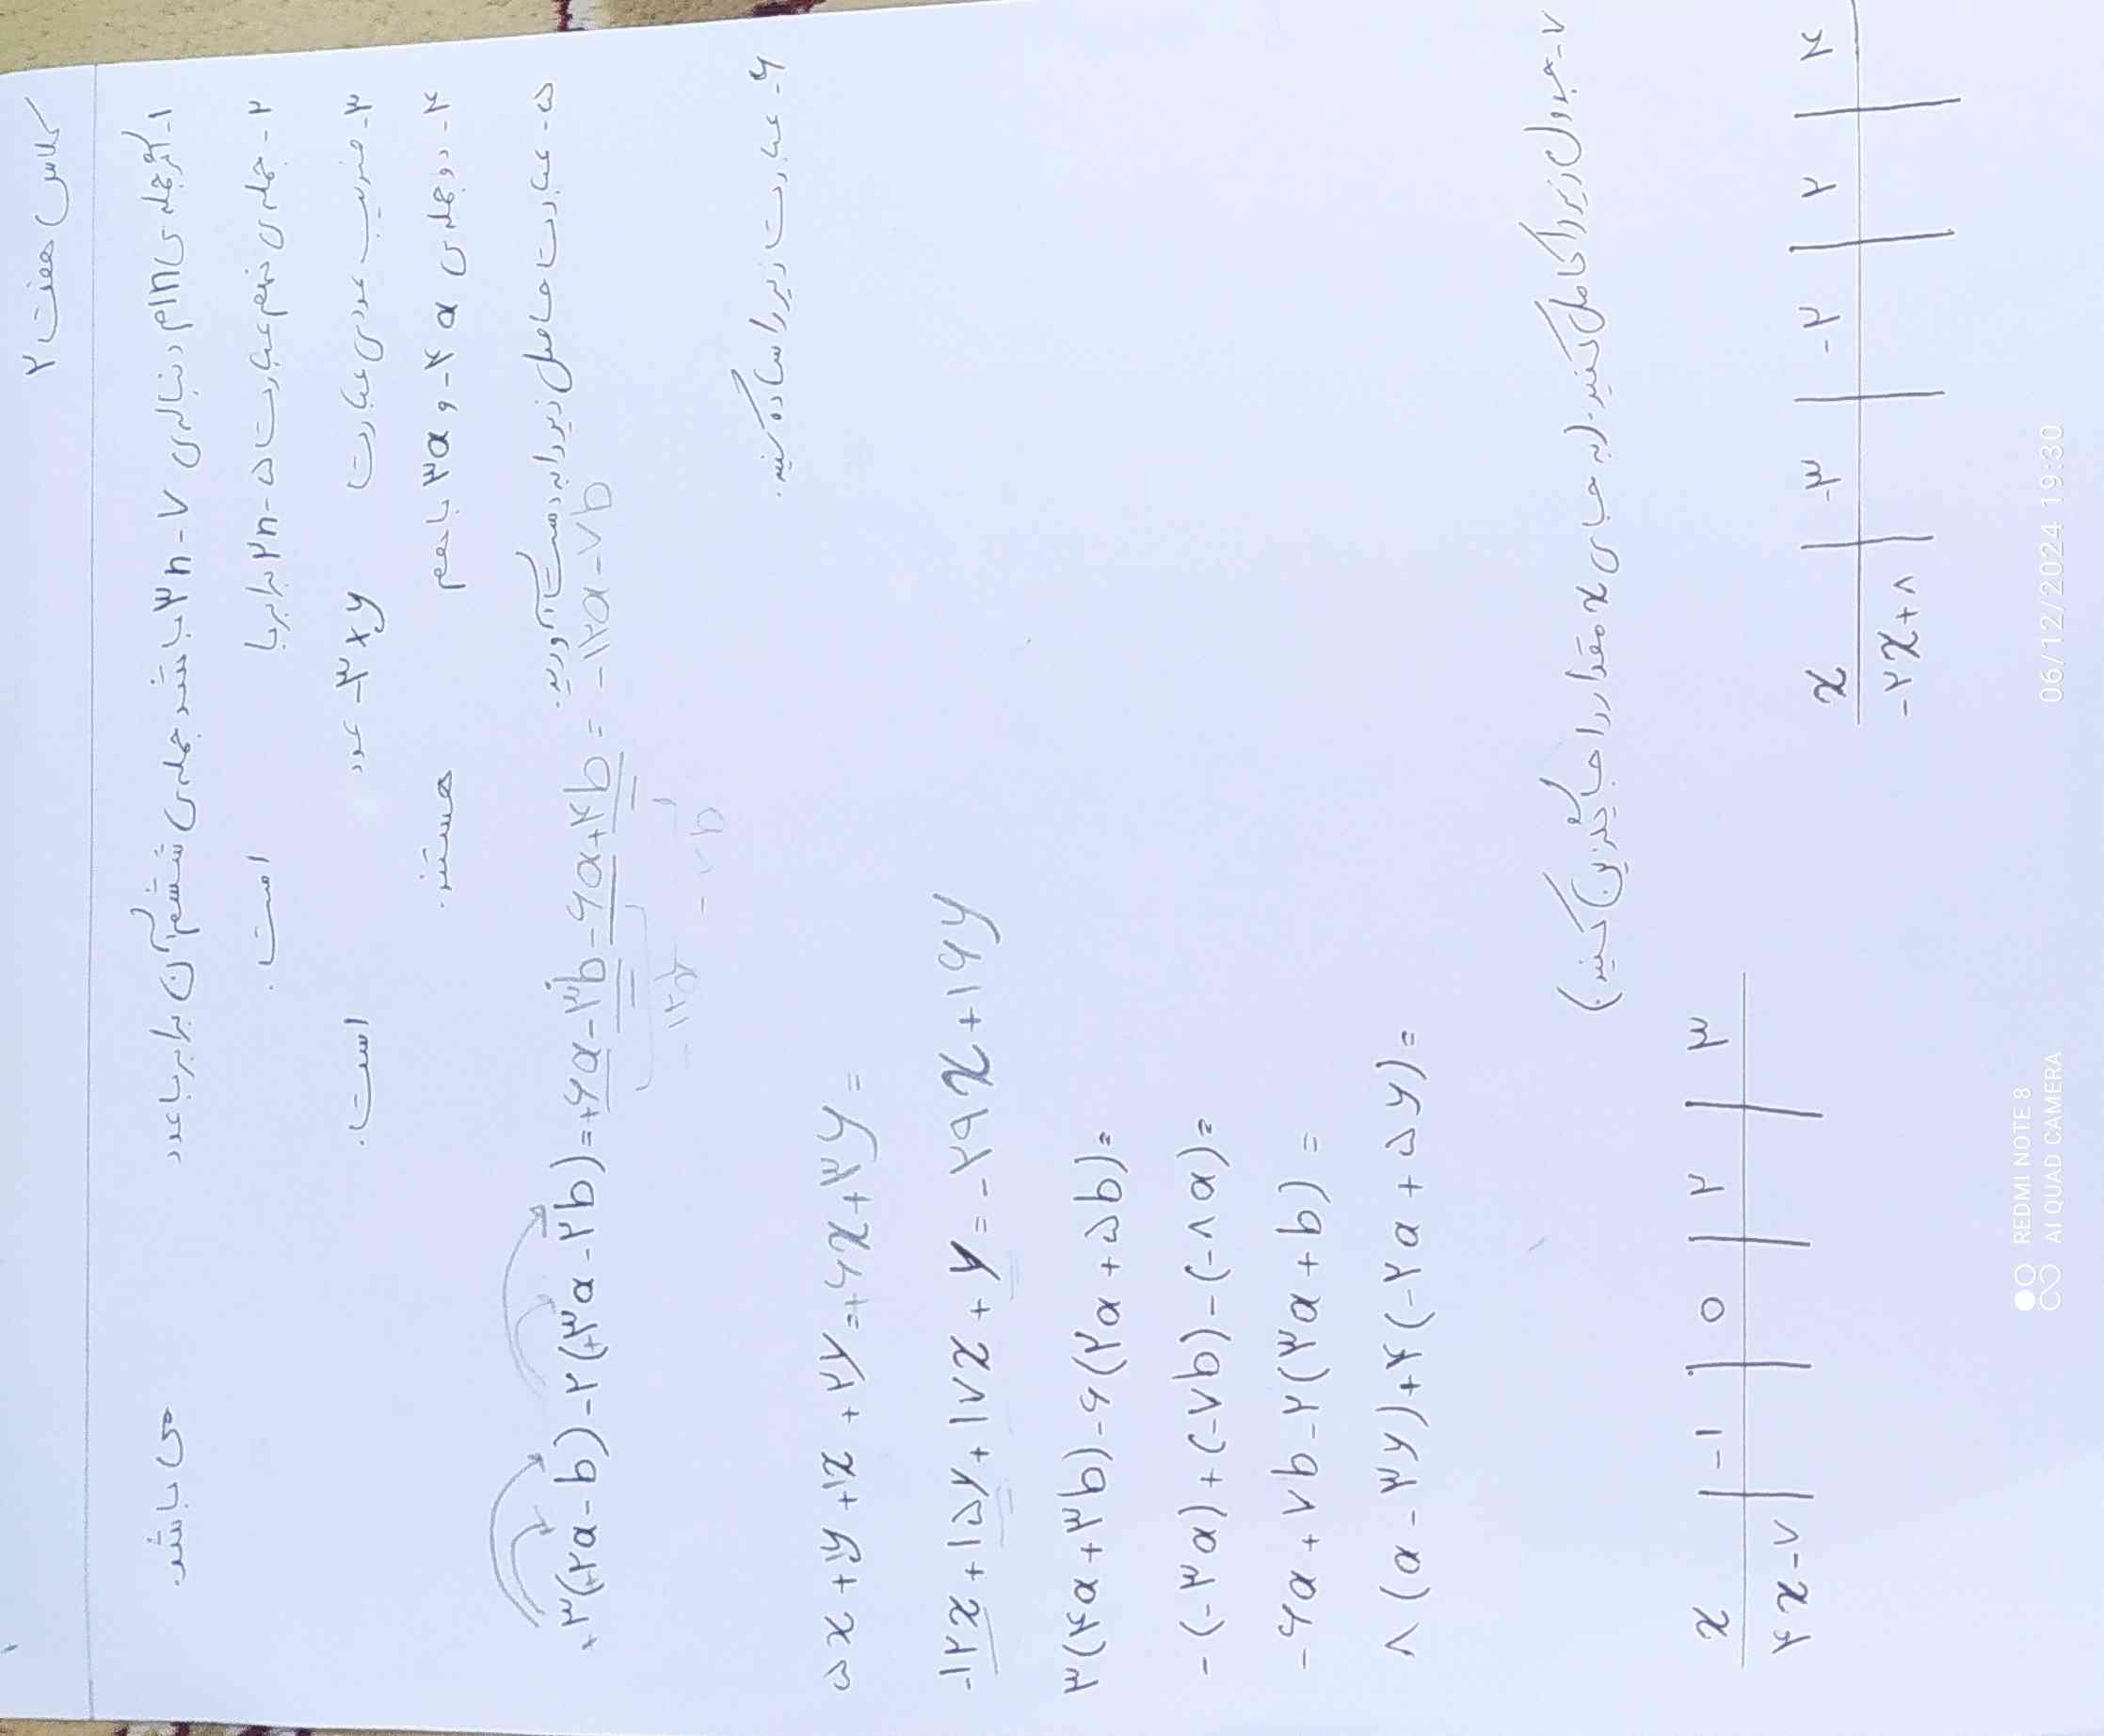 کلاس هفت ۲
۱- اگر جمله ی nام دنباله ی ۳n-۷ باشد جمله ی ششم آن برابر با عدد می باشد.
۲- جمله ی نهم عبارت ۲n-۵ برابر با است.
۳- ضریب عددی عبارت -۳xy عدد است.
۴- دو جمله ی -۴a و ۳a با هم هستند.
۵- عبارت حاصل زیر را به دست آورید.
+۳(+۲a-b)-۲(+۳a-۲b)=+۶a-۳b-۶a+۴b=-۱۲a-۷b
-۱۲a -۷b
۶- عبارت زیر را ساده کنید.
۵x+۱y+۱x+۲y=+۶x+۳y=
-۱۲x+۱۵y+۱۷x+y=-۲۹x+۱۶y
۳(۴a+۳b)-۶(۲a+۵b)=
-(-۳a)+(-۷b)-(-۸a)=
-۶a+۷b-۲(۳a+b)=
۸(a-۳y)+۴(-۲a+۵y)=
۷- جدول زیر را کامل کنید. (به جای x مقدار را جایگزین کنید)
x -۱ ۰ ۲ ۳
۴x-۷
x -۳ -۲ ۲ ۴
-۲x+۸
REDMI NOTE 8
AI QUAD CAMERA
06/12/2024 19:30